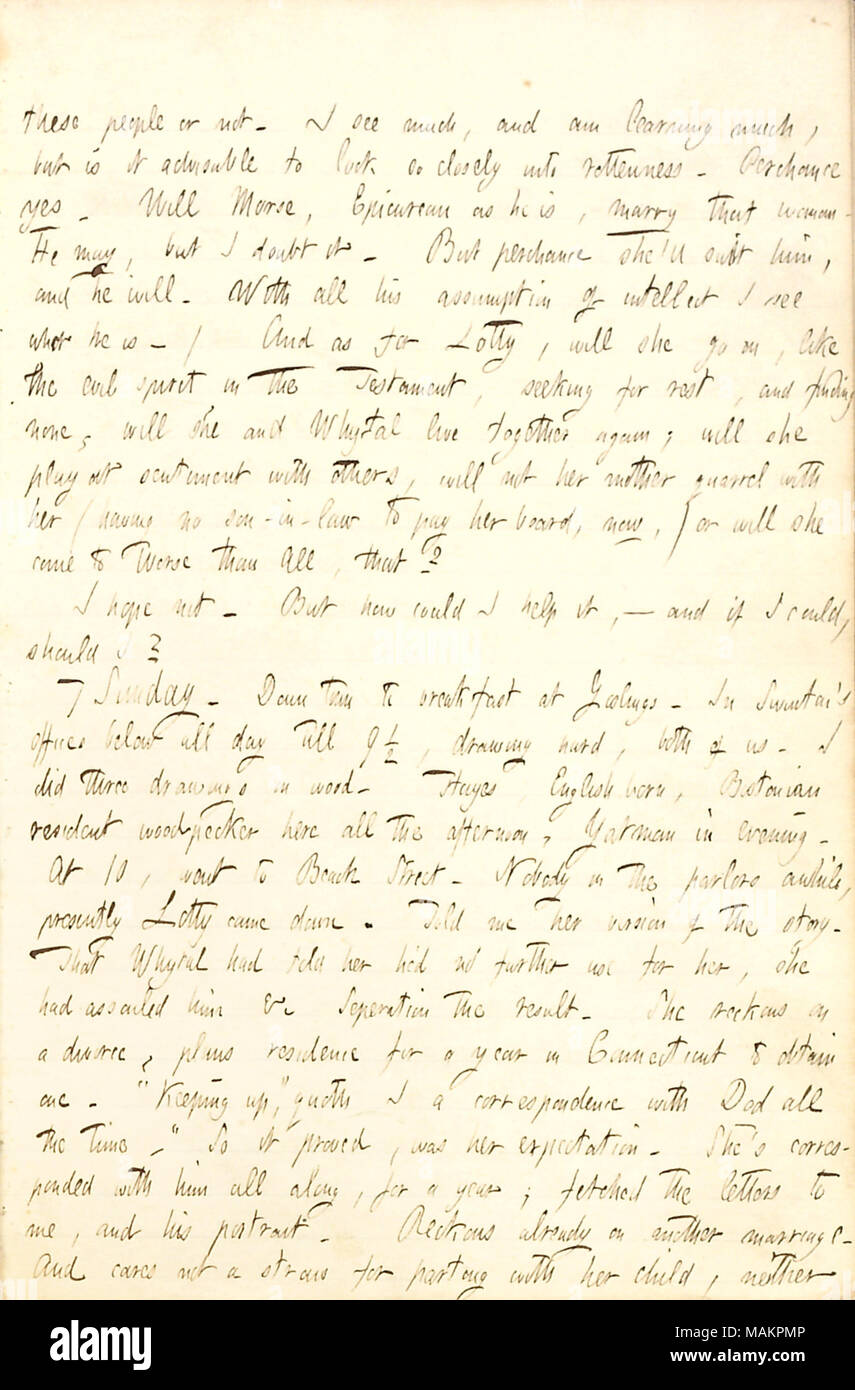 these people or not. I see much, and am learning much,
but is it advisable to look so closely into rottenness. Perchance
yes. Will Morse, Epicurean as he is, marry that woman.
He may, but I doubt it. But perchance she'll suit him,
and he will. With all his assumption of intellect I see
what he is. ) And as for Lotty, will she go on, like
the evil spirit in the Testament, seeking for rest, and finding
none, will she and Whytal live together again; will she
play at sentiment with others, will not her mother quarrel with
her (having no son-in-law to pay her board, now,) or will she
come to Worse than all, that?
I hope not. But how could I help it, — and if I could,
should I?
7 Sunday. Down town to breakfast at Goslings. In
offices below all day till 9 1/2, drawing hard, both of us. I
did three drawings on wood. Hayes, English born, Bostonian
resident woodpecker here all the afternoon, Yatman in evening.
At 10, went to Beach Street. Nobody in the parlors awhile,
presently Lotty came down. Told me her version of the story.
That Whytal had told her he'd no further use for her, she
had assailed him &c Seperation the result. She reckons on
a divorce, plans residence for a year in Connecticut to obtain
one. "Keeping up," quoth I a correspondence with Dod all
the time." So it proved, was her expectation. She's corres-
ponded with him all along, for a year; fetched the letters to
me, and his portrait. Reckons already on another marriage.
And cares not a straw for parting with her child, neither
alamy
Image ID: MAKPMP
www.alamy.com